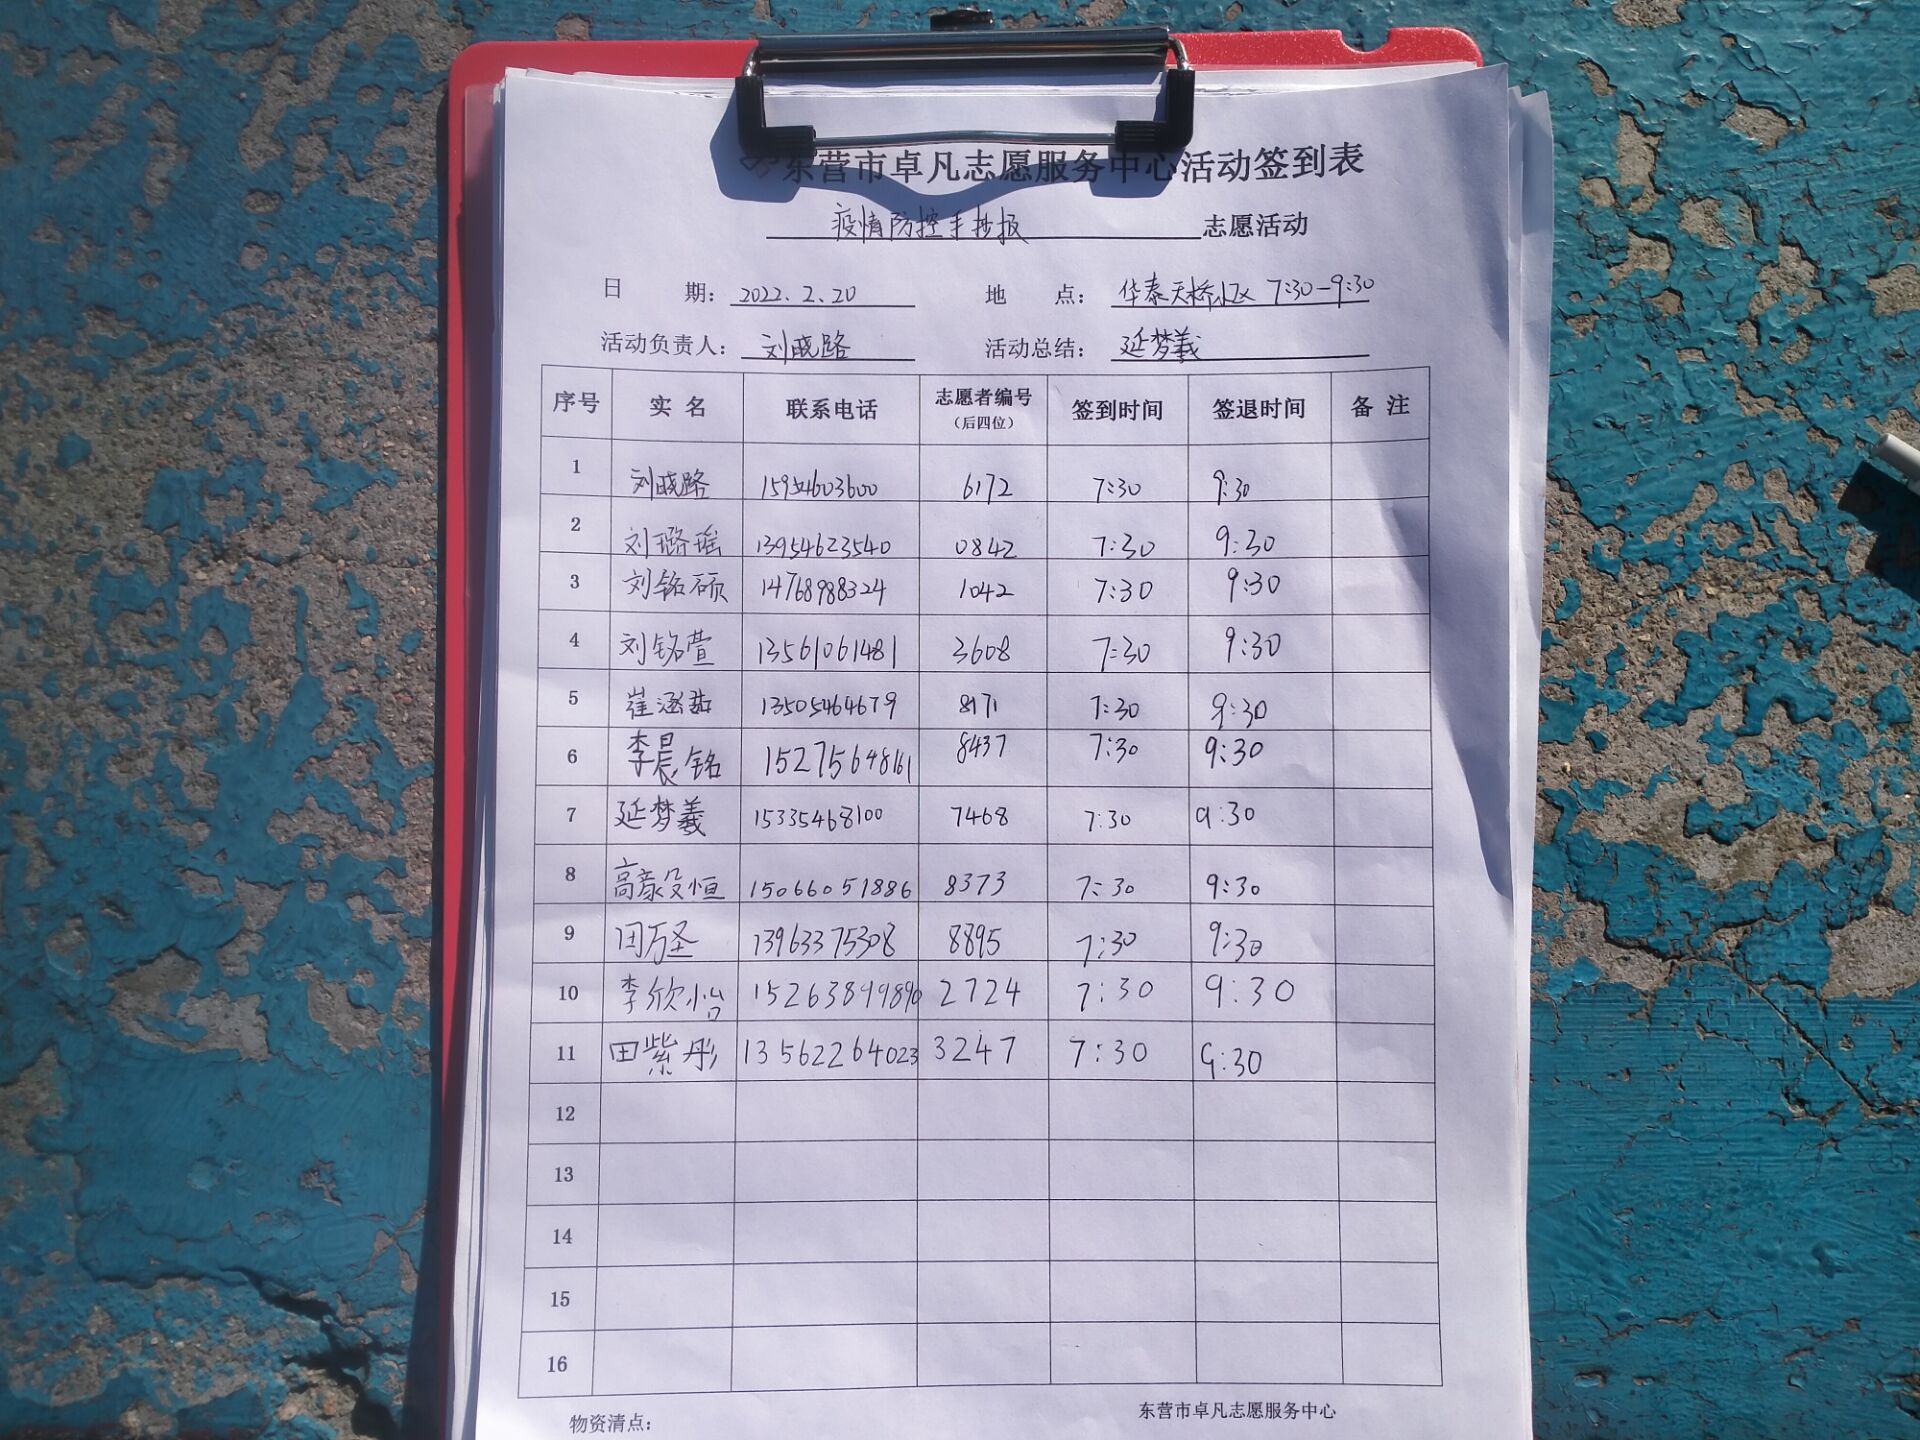 东营市卓凡志愿服务中心活动签到表
疫情防控手抄报 志愿活动
日 期: 2022.2.20 地 点: 华泰天桥小区 7:30-9:30
活动负责人: 刘晓路 活动总结: 延梦羲
序号 实 名 联系电话 志愿者编号 (后四位) 签到时间 签退时间 备 注
1 刘晓路 15954603600 6172 7:30 9:30
2 刘璐瑶 13954623540 0842 7:30 9:30
3 刘铭硕 14768988324 1042 7:30 9:30
4 刘铭萱 13561061481 3608 7:30 9:30
5 崔涵茹 13505464679 8171 7:30 9:30
6 李晨铭 15275648161 8437 7:30 9:30
7 延梦羲 15335468100 7468 7:30 9:30
8 15066051886 8373 7:30 9:30
9 田万圣 13963375308 8895 7:30 9:30
10 李欣怡 15263899890 2724 7:30 9:30
11 田紫彤 13562264023 3247 7:30 9:30
12
13
14
15
16
物资清点: 东营市卓凡志愿服务中心